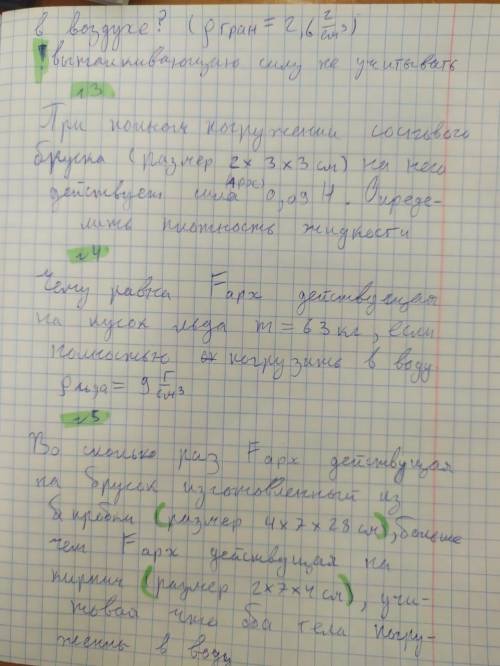 в воздухе? (ρ гран = 2,6 г/см³)
! выталкивающую силу не учитывать
№3
При полном погружении соснового
бруска (размер 2 x 3 x 3 см) на него
действует сила (Арх) 0,09 Н. Опреде-
лить плотность жидкости
№4
Чему равна Fарх действующая
на кусок льда m = 63 кг, если
полностью погрузить в воду
ρ льда = 9 г/см³
№5
Во сколько раз Fарх действущая
на брусок изготовленный из
(размер 4 x 7 x 28 см), больше
чем Fарх действущая на
кирпич (размер 2 x 7 x 4 см), учи-
товая что оба тела погру-
женны в воду